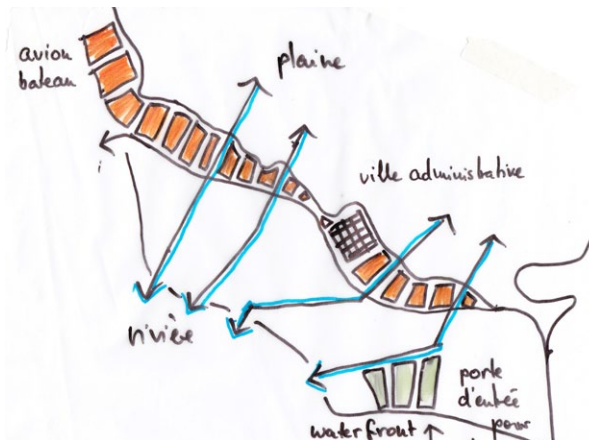 avion
bateau
plaine
ville administrative
rivière
porte
d'entrée
pour
waterfront